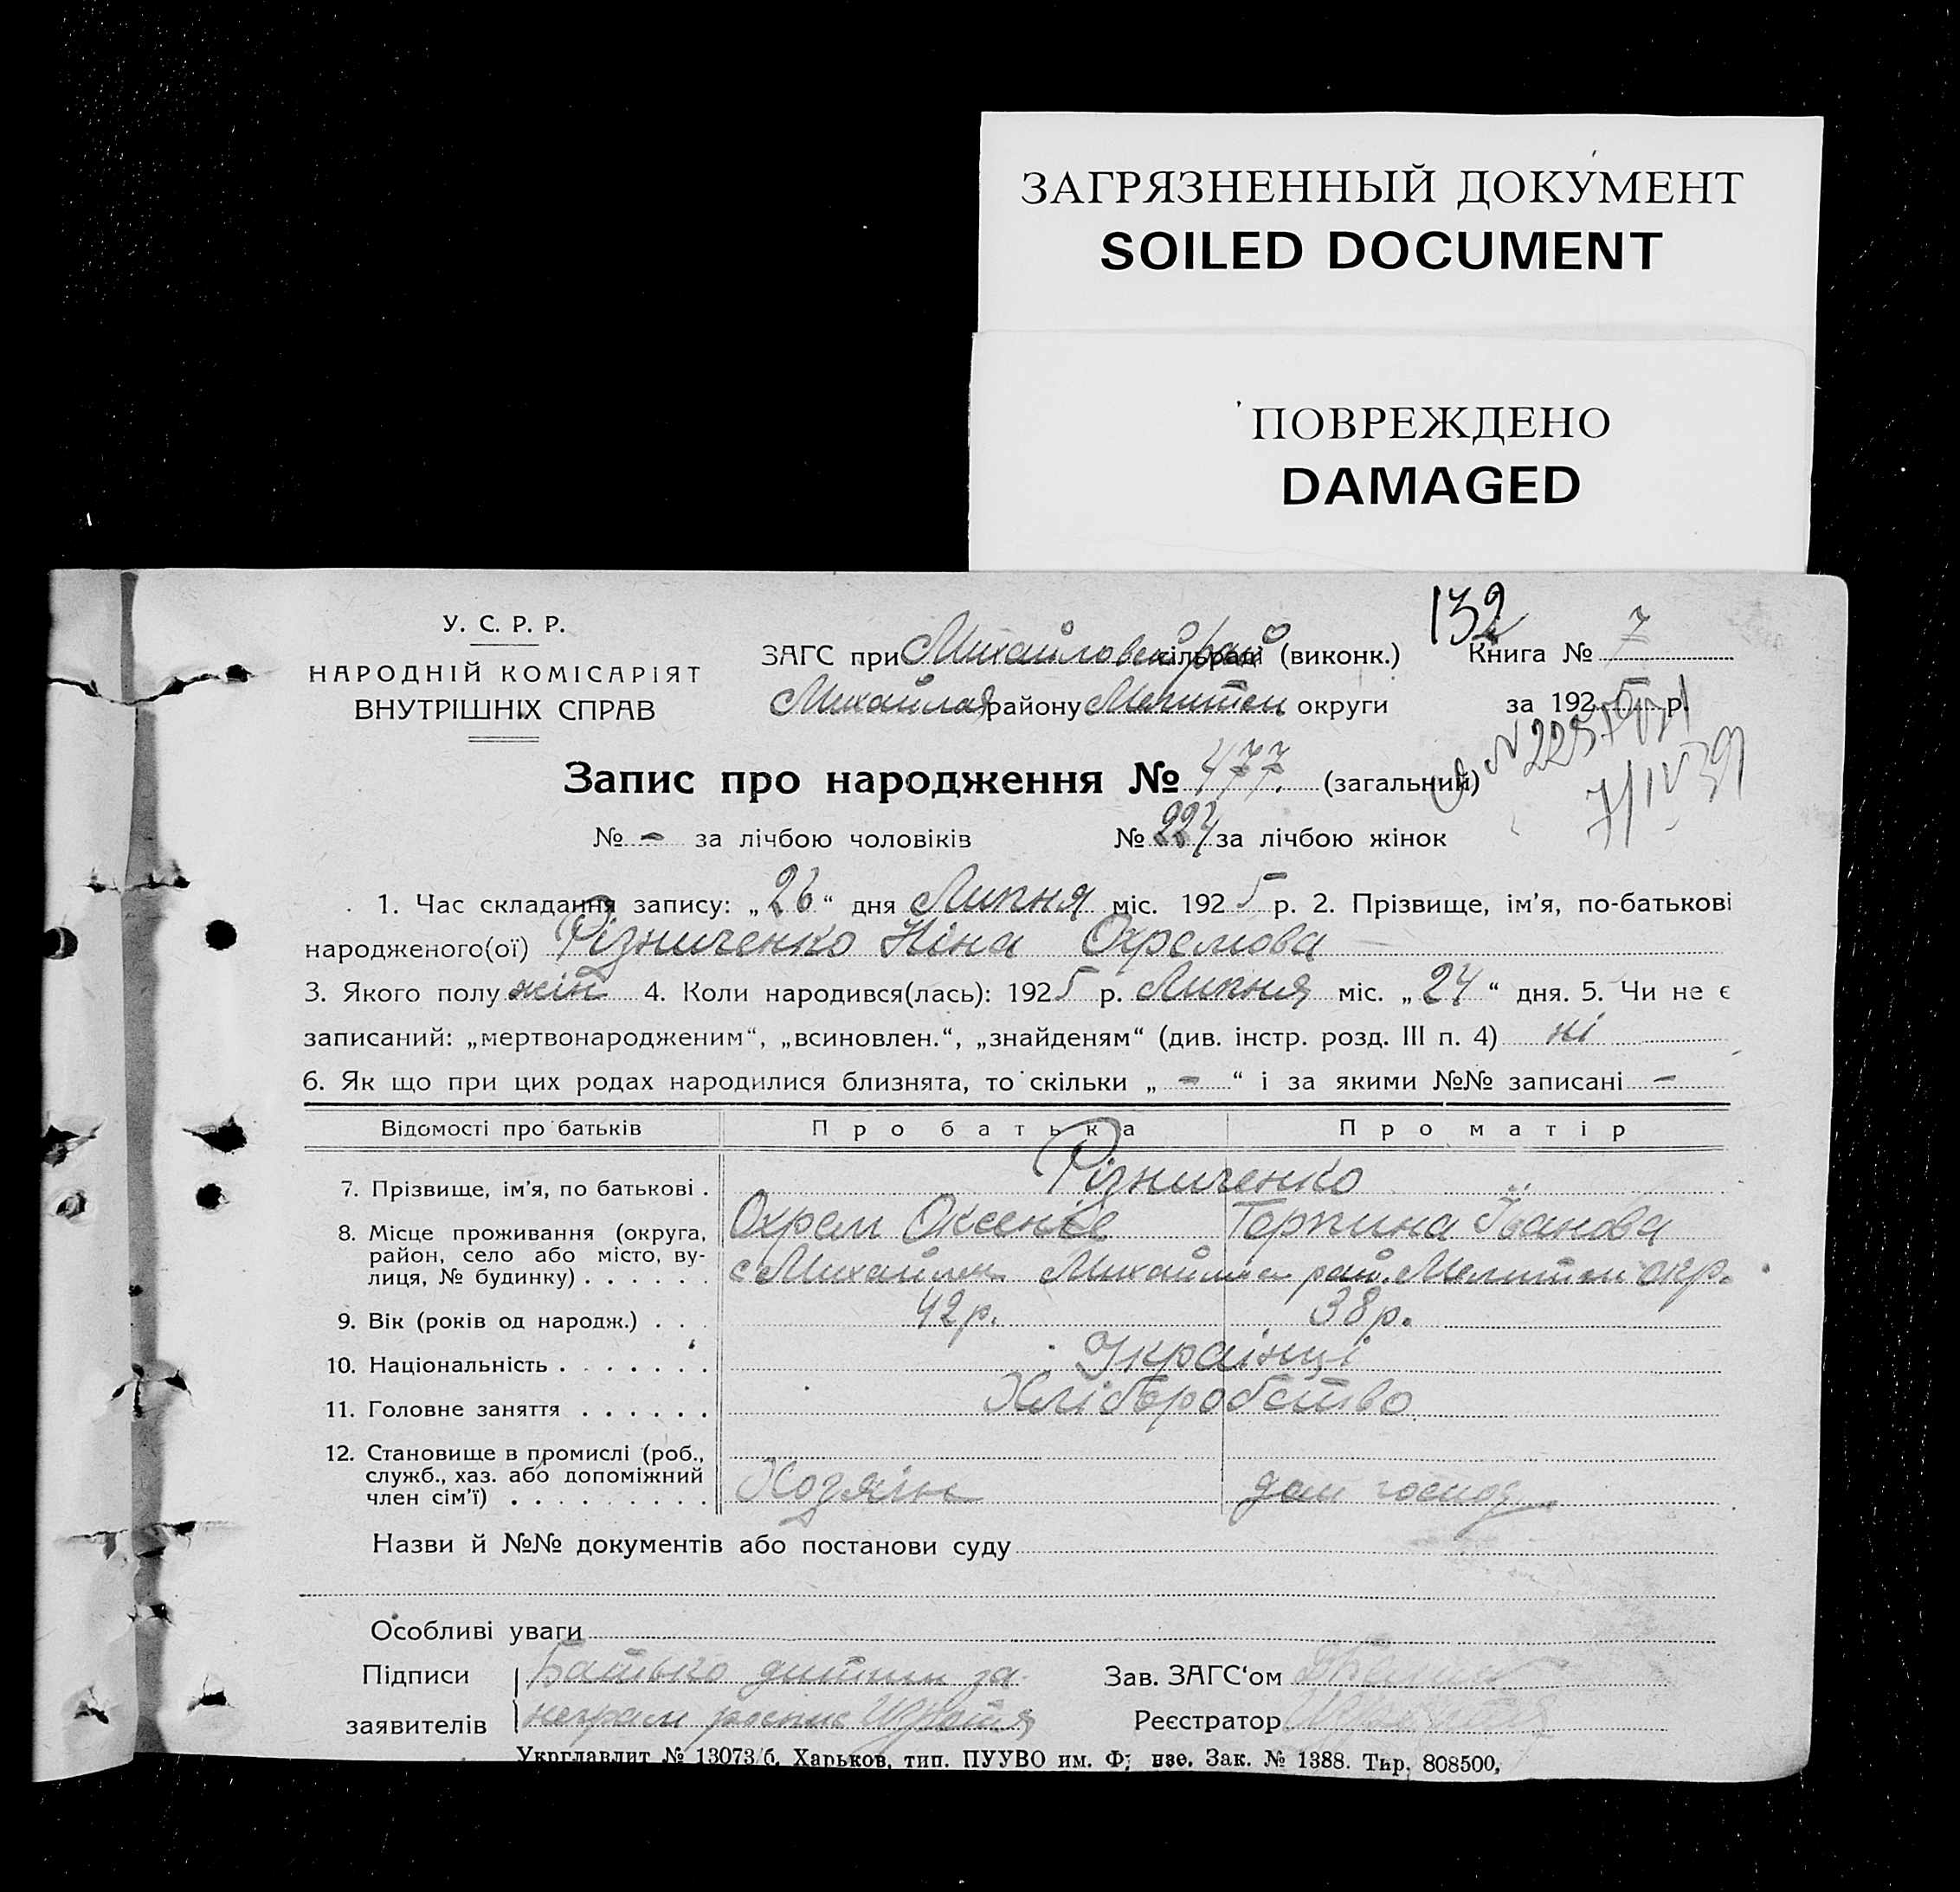 ЗАГРЯЗНЕННЫЙ ДОКУМЕНТ
SOILED DOCUMENT
ПОВРЕЖДЕНО
DAMAGED
132
У. С. Р. Р.
НАРОДНІЙ КОМІСАРІЯТ
ВНУТРІШНІХ СПРАВ
ЗАГС при Михайловск рай сільраді (виконк.)
Книга № 7
району Мелитоп округи
за 1925 р.
7/IV 39
Запис про народження № 477. (загальний)
№ - за лічбою чоловіків № 224 за лічбою жінок
1. Час складання запису: „26“ дня Липня міс. 1925 р. 2. Прізвище, ім’я, по-батькові
народженого(ої) Різниченко Ніна Охремова
3. Якого полу жін 4. Коли народився(лась): 1925 р. Липня міс. „24“ дня. 5. Чи не є
записаний: „мертвонародженим“, „всиновлен.“, „знайденям“ (див. інстр. розд. III п. 4) ні
6. Як що при цих родах народилися близнята, то скільки „ - “ і за якими №№ записані -
Відомості про батьків Про батька Про матір
7. Прізвище, ім’я, по батькові . Різниченко
Охрем Терпина Іванова
8. Місце проживання (округа,
район, село або місто, ву-
лиця, № будинку) . . . . . . рай. Мелитоп окр.
9. Вік (років од народж.) . . . 42 р. 38 р.
10. Національність . . . . . . . Українці
11. Головне заняття . . . . . . Хліборобство
12. Становище в промислі (роб.,
служб., хаз. або допоміжний
член сім’ї) . . . . . . . . . Хозяін дом господ
Назви й №№ документів або постанови суду
Особливі уваги
Підписи Батько дитини за
заявителів неграм
Зав. ЗАГС‘ом
Реєстратор
Укрглавлит № 13073/б. Харьков, тип. ПУУВО им. Ф. Зак. № 1388. Тир. 808500,